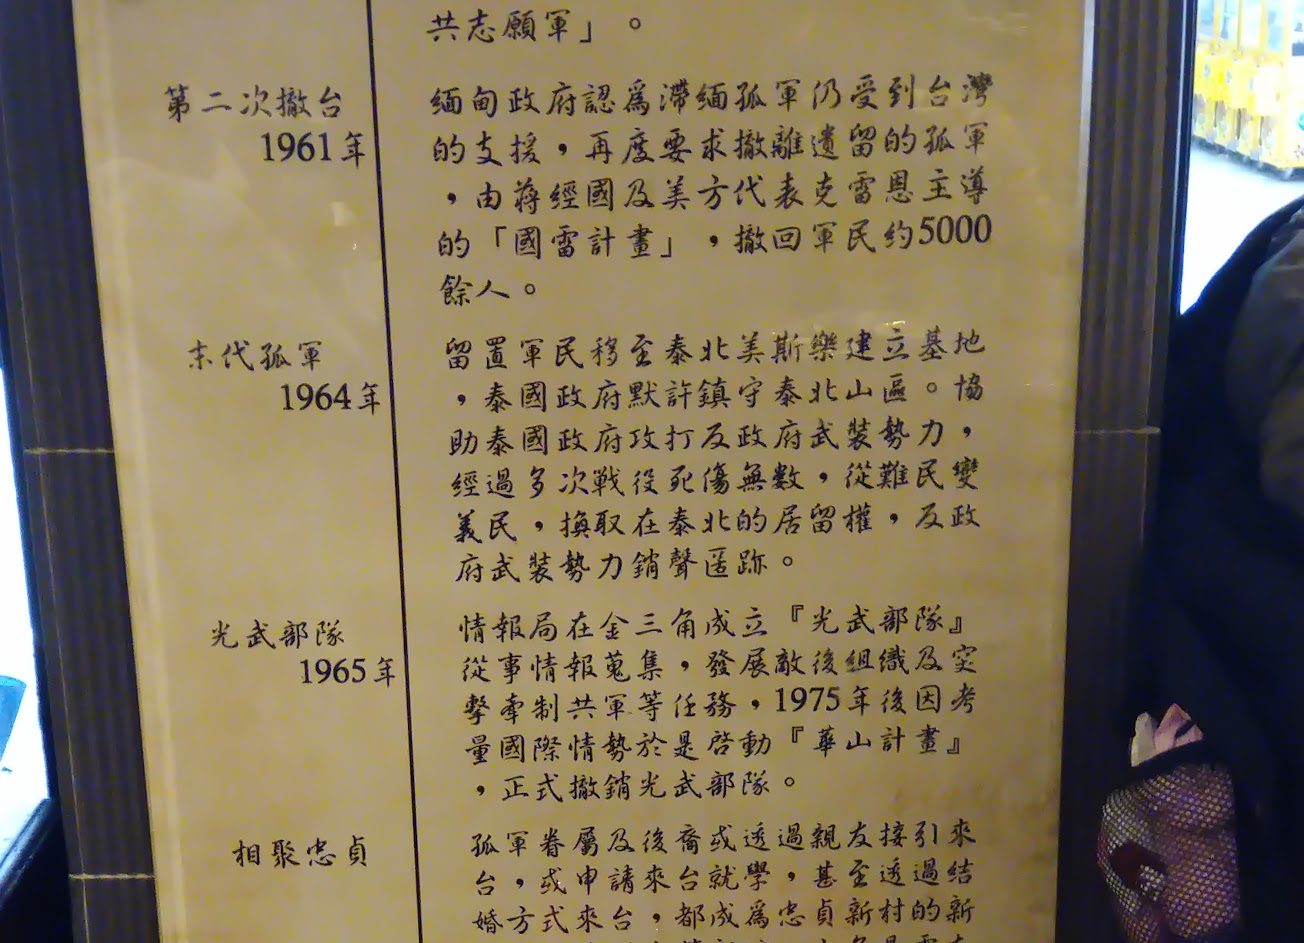 共志願軍」。
第二次撤台
1961年
緬甸政府認為滯緬孤軍仍受到台灣
的支援，再度要求撤離遺留的孤軍
，由蔣經國及美方代表克雷恩主導
的「國雷計畫」，撤回軍民約5000
餘人。
末代孤軍
1964年
留置軍民移至泰北美斯樂建立基地
，泰國政府默許鎮守泰北山區。協
助泰國政府攻打反政府武裝勢力，
經過多次戰役死傷無數，從難民變
義民，換取在泰北的居留權，反政
府武裝勢力銷聲匿跡。
光武部隊
1965年
情報局在金三角成立『光武部隊』
從事情報蒐集，發展敵後組織及突
擊牽制共軍等任務，1975年後因考
量國際情勢於是啓動『華山計畫』
，正式撤銷光武部隊。
相聚忠貞
孤軍眷屬及後裔或透過親友接引來
台，或申請來台就學，甚至透過結
婚方式來台，都成為忠貞新村的新